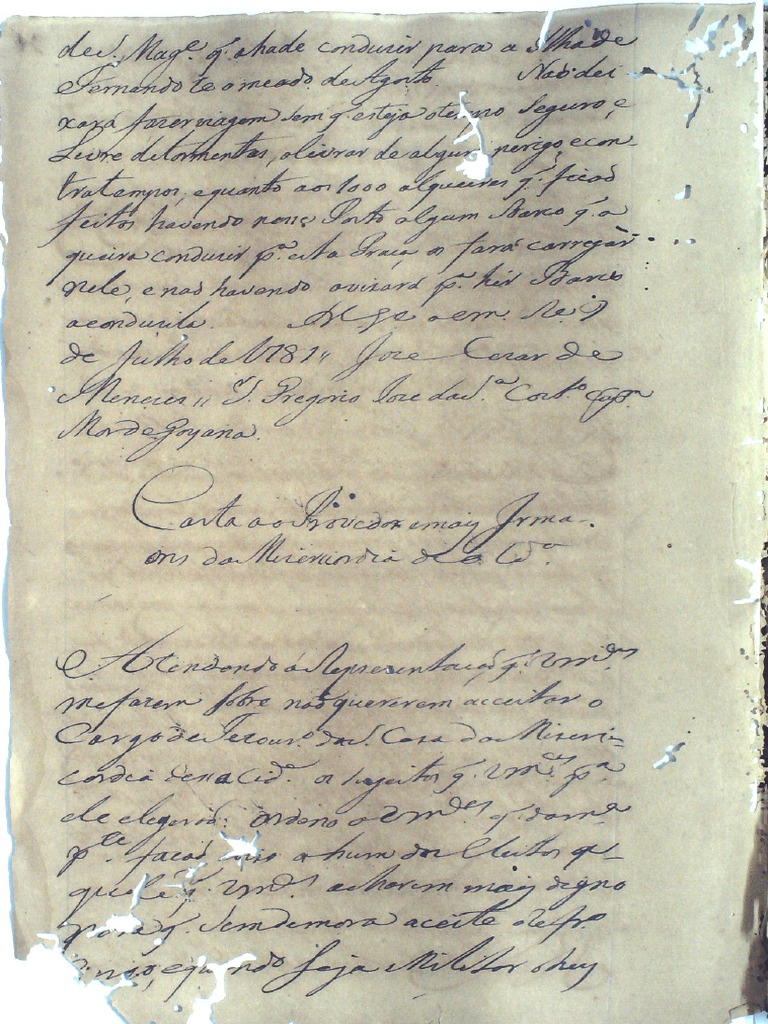 de S. Mag.e q. ahade conduzir para a Ilha de
Fernando te o meado de Agosto. Naõ dei
xará fazer viagem sem q. esteja o tempo seguro, e
Livre de tormentas, olivrar de algum perigo, e con-
tratempos, e quanto aos 1000 alqueires q. ficaõ
feitos havendo nesse Porto algum Barco q. o
queira conduzir p.a esta Praça os fará carregar
nele, e naõ havendo avizará p.a hir Barco
a conduzila. D.s G.e a vm. Re. 9
de Julho de 1781,, Jose Cezar de
Menezes,, S.r Gregorio Joze da S.a Cout.o Cap.m
Mor de Goyana.
Carta ao Provedor e maiz Irma-
ons da Mizericordia de a Cid.e
Atendendo á Reprezentaçaõ q. Vm.ces
me fazem sobre naõ quererem acceitar o
Cargo de Tezour.o da S. Caza da Mizeri-
cordia desta Cid.e os sugeitos q. Vm.ces p.a
ele elegeraõ: ordeno a Vm.ces q. da m.a
p.te façaõ avizo a hum dos Eleitos
qual q. Vm.ces acharem maiz digno
para q. sem demora aceite
e quando seja Militar o hey